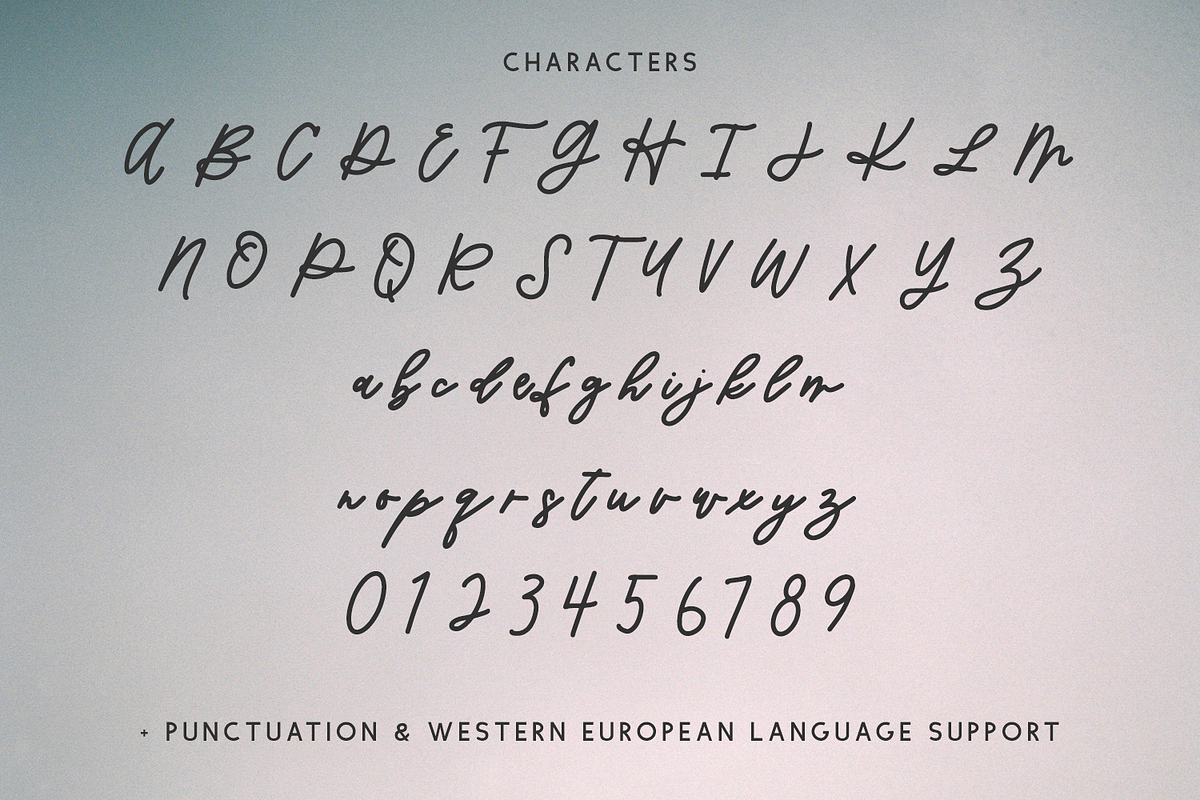 CHARACTERS
A B C D E F G H I J K L M
N O P Q R S T U V W X Y Z
a b c d e f g h i j k l m
n o p q r s t u v w x y z
0 1 2 3 4 5 6 7 8 9
+ PUNCTUATION & WESTERN EUROPEAN LANGUAGE SUPPORT